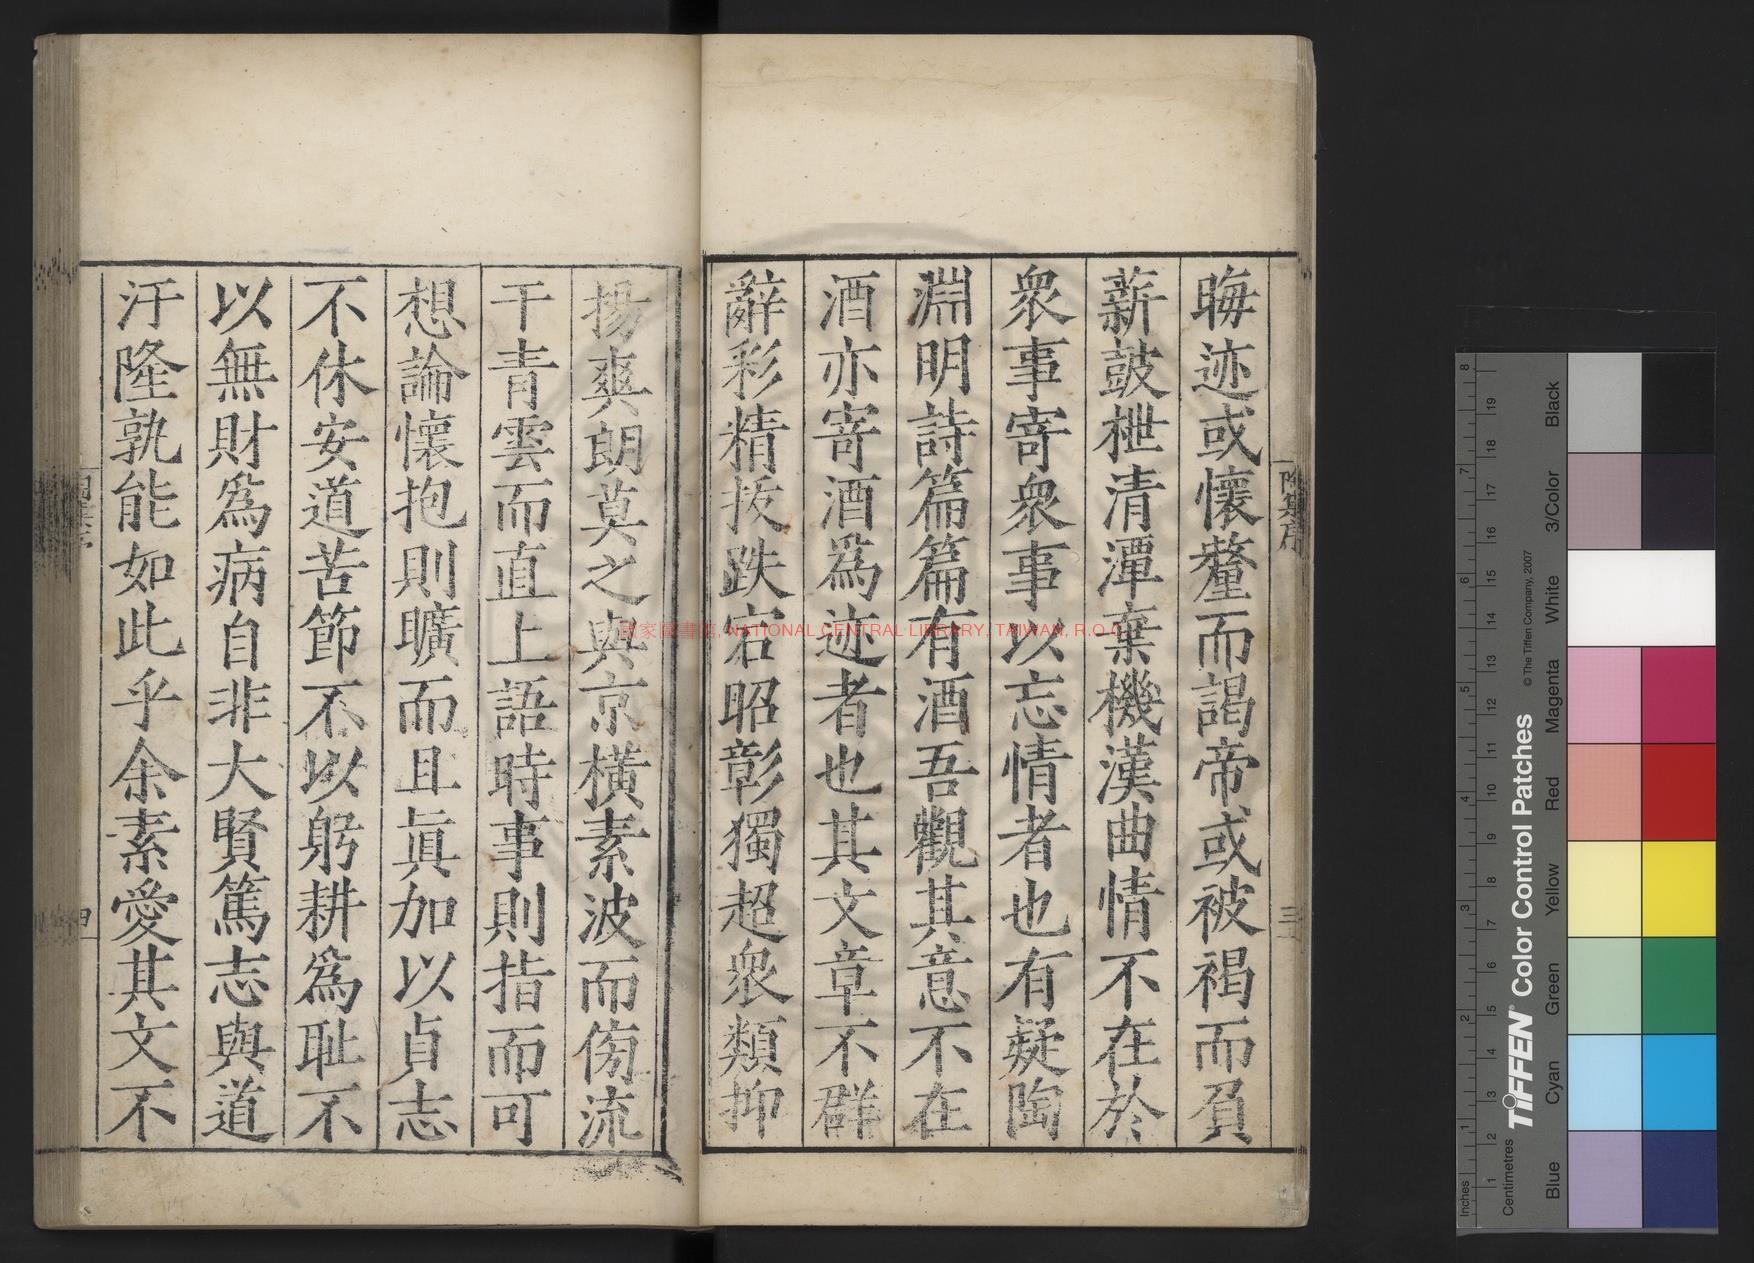 晦迹或懷釐而謁帝或被褐而負
薪鼓枻清潭棄機漢曲情不在於
衆事寄衆事以忘情者也有疑陶
淵明詩篇篇有酒吾觀其意不在
酒亦寄酒爲迹者也其文章不群
辭彩精拔跌宕昭彰獨超衆類抑
揚爽朗莫之與京橫素波而傍流
干青雲而直上語時事則指而可
想論懷抱則曠而且眞加以貞志
不休安道苦節不以躬耕爲耻不
以無財爲病自非大賢篤志與道
汙隆孰能如此乎余素愛其文不
陶集序
三
四
國家圖書館, NATIONAL CENTRAL LIBRARY, TAIWAN, R.O.C
Inches
Centimetres
TIFFEN® Color Control Patches
© The Tiffen Company, 2007
Blue
Cyan
Green
Yellow
Red
Magenta
White
3/Color
Black